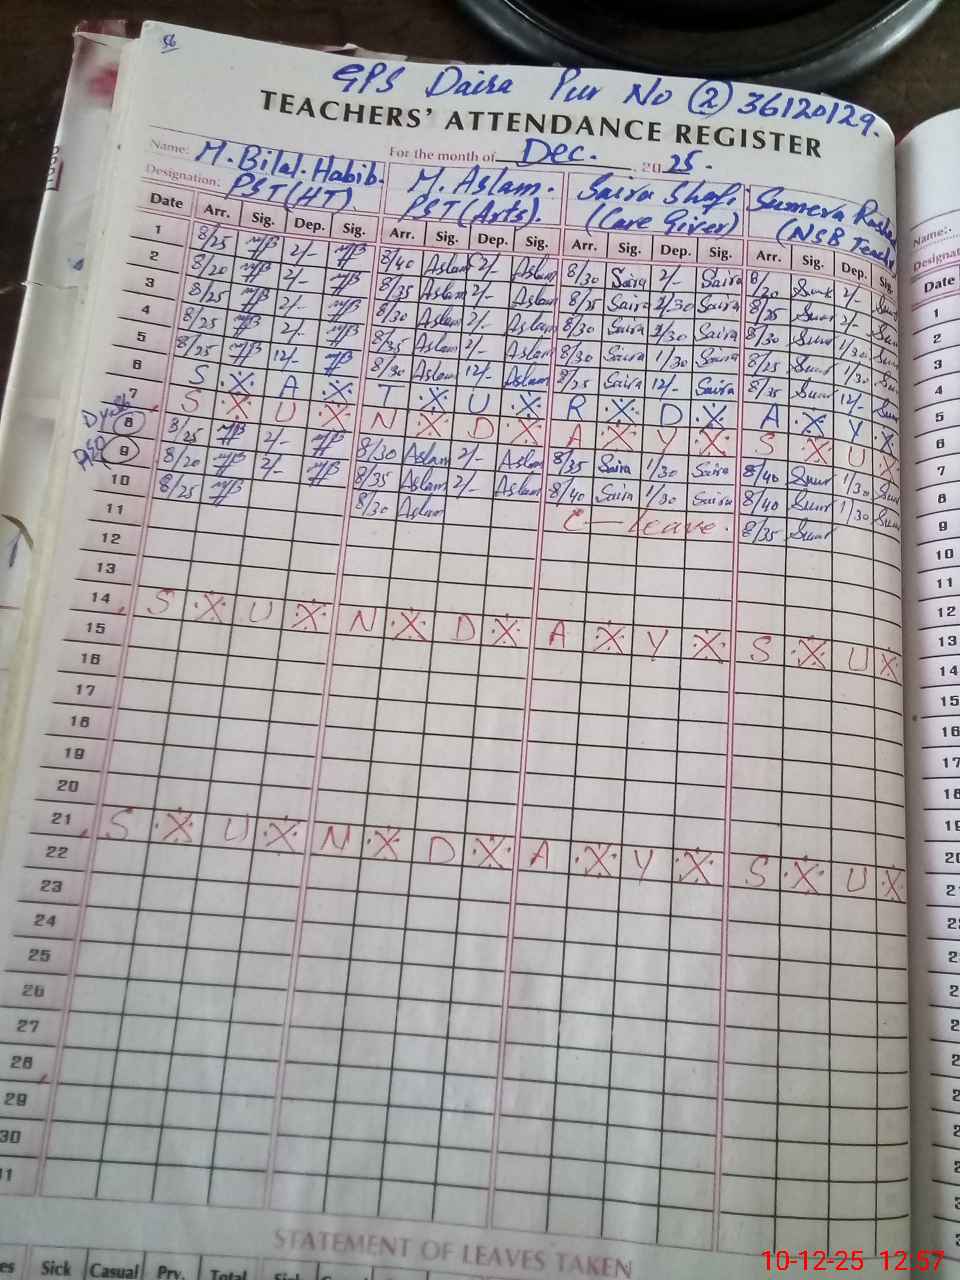 56
GPS Daira Pur No (2) 36120129.
TEACHERS' ATTENDANCE REGISTER
For the month of Dec. 2025.
Name: M. Bilal. Habib. M. Aslam. Saira Shafi Sumera
Designation: PST (HT) PST (Arts). (Care Giver) (NSB Teache
Date Arr. Sig. Dep. Sig. Arr. Sig. Dep. Sig. Arr. Sig. Dep. Sig. Arr. Sig. Dep. Sig.
1 8/25 2/- 8/40 Aslam 2/- Aslam 8/30 Saira 2/- Saira 8/20 2/-
2 8/20 2/- 8/35 Aslam 2/- Aslam 8/25 Saira 2/30 Saira 8/25 2/-
3 8/25 2/- 8/30 Aslam 2/- Aslam 8/30 Saira Saira 8/30 1/30
4 8/25 2/- 8/35 Aslam 2/- Aslam 8/30 Saira 1/30 Saira 8/25 1/30
5 8/25 12/- 8/30 Aslam 12/- Aslam 8/35 Saira 12/- Saira 8/35 12/-
6 S X A X T X U X R X D X A X Y X
7 S X U X N X D X A X Y X S X U X
8 8/25 2/- 8/30 Aslam 2/- Aslam 8/35 Saira 1/30 Saira 8/40 1/30
9 8/20 2/- 8/35 Aslam 2/- Aslam 8/40 Saira 1/30 Saira 8/40 1/30
10 8/25 8/30 Aslam C-leave. 8/35
11
12
13
14 S X U X N X D X A X Y X S X U X
15
16
17
18
19
20
21 S X U X N X D X A X Y X S X U X
22
23
24
25
26
27
28
29
30
31
STATEMENT OF LEAVES TAKEN
Sick Casual Prv. Total Sick
Name:-
Designat
Date
1
2
3
4
5
6
7
8
9
10
11
12
13
14
15
16
17
18
19
20
10-12-25 12:57